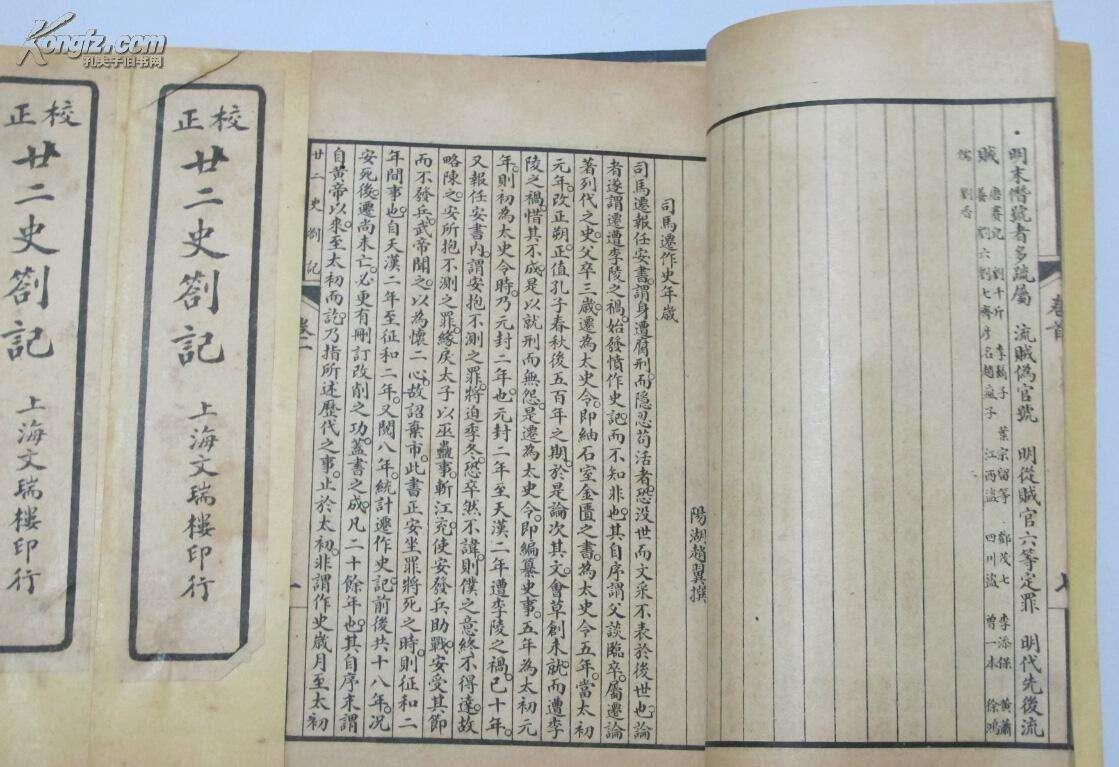 卷首
七
明末僭號者多疏屬　流賊偽官號　明從賊官六等定罪　明代先後流
賊　唐賽兒　劉千斤　李鬍子　葉宗留等　鄧茂七　李添保　黃蕭
養　劉六劉七齊彥名趙瘋子　江西盜　四川盜　曾一本　徐鴻
儒　劉香
陽湖趙翼撰
司馬遷作史年歲
司馬遷報任安書。謂身遭腐刑。而隱忍苟活者。恐沒世而文采不表於後世也。論
者遂謂遷遭李陵之禍。始發憤作史記。而不知非也。其自序謂父談臨卒。屬遷論
著列代之史。父卒三歲。遷為太史令。即紬石室金匱之書。為太史令五年。當太初
元年。改正朔。正值孔子春秋後五百年之期。於是論次其文。會草創未就。而遭李
陵之禍。惜其不成。是以就刑而無怨。是遷為太史令。即編纂史事。五年為太初元
年。則初為太史令時。乃元封二年也。元封二年至天漢二年遭李陵之禍。已十年。
又報任安書內。謂安抱不測之罪。將迫季冬。恐卒然不諱。則僕之意終不得達。故
略陳之。安所抱不測之罪。緣戾太子以巫蠱事。斬江充。使安發兵助戰。安受其節
而不發兵。武帝聞之。以為懷二心。故詔棄市。此書正安坐罪將死之時。則征和二
年間事也。自天漢二年至征和二年。又閱八年。統計遷作史記前後共十八年。況
安死後。遷尚未亡。必更有刪訂改削之功。蓋書之成。凡二十餘年也。其自序末謂
自黃帝以來。至太初而訖。乃指所述歷代之事。止於太初。非謂作史歲月至太初
廿二史劄記
卷一
一
校正
廿二史劄記
上海文瑞樓印行
校正
廿二史劄記
上海文瑞樓印行
Kongfz.com
孔夫子旧书网